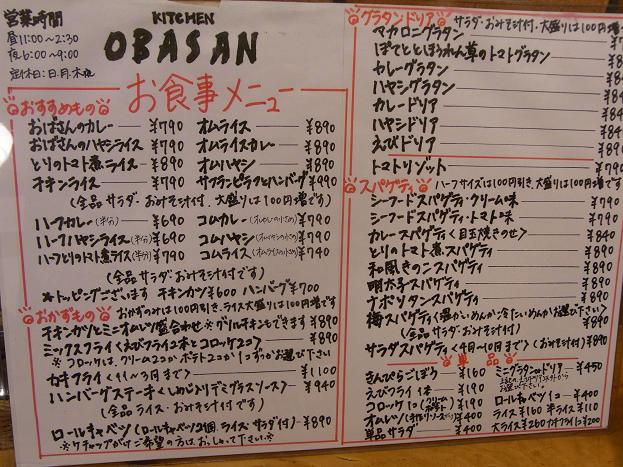 営業時間
昼11:00～2:30
夜6:00～9:00
定休日:日.月.木夜
KITCHEN
OBASAN
お食事メニュー
おすすめもの
おばさんのカレー ¥790
おばさんのハヤシライス ¥790
とりのトマト煮ライス ¥890
チキンライス ¥790
オムライス ¥890
オムライスカレー ¥890
オムハヤシ ¥890
サフランピラフとハンバーグ ¥990
(全品 サラダ・おみそ汁付、大盛りは100円増です)
ハーフカレー(半分) ¥690
ハーフハヤシライス(半分) ¥690
ハーフとりのトマト煮ライス(半分) ¥790
コムカレー ¥790
コムハヤシ ¥790
コムライス ¥740
(全品サラダ・おみそ汁付です)
*トッピングございます チキンカツ¥600 ハンバーグ¥700
おかずもの
おかずのみは100円引き、ライス大盛りは100円増です
チキンカツとミニオムレツ盛合わせ※グリルチキンもできます ¥890
ミックスフライ<えびフライ2本とコロッケ2コ> ¥890
※コロッケは、クリーム2コか ポテト2コか 1コずつかお選び下さい
カキフライ<11～3月まで> ¥1100
ハンバーグステーキ<しめじ入りデミグラスソース> ¥940
(全品 ライス・おみそ汁付です)
ロールキャベツ(ロールキャベツ2個.ライス・サラダ付) ¥890
※ケチャップがけご希望の方は、おっしゃって下さい※
グラタンドリア
サラダ・おみそ汁付・大盛りは100円増
マカロニグラタン
ぽてととほうれん草のトマトグラタン
カレーグラタン
ハヤシグラタン
カレードリア
ハヤシドリア
えびドリア
トマトリゾット ¥790
スパゲティ
ハーフサイズは100円引き、大盛りは100円増です
シーフードスパゲティ・クリーム味 ¥790
シーフードスパゲティ・トマト味 ¥790
カレースパゲティ<目玉焼きのせ> ¥840
とりのトマト煮スパゲティ ¥890
和風きのこスパゲティ ¥790
明太子スパゲティ ¥790
ナポリタンスパゲティ ¥790
梅スパゲティ<温かいめんか冷たいめんかお選び下さい> ¥890
(全品サラダ・おみそ汁付)
サラダスパゲティ<4月～10月まで>(おみそ汁付) ¥890
単品
きんぴらごぼう ¥160
えびフライ1本 ¥190
コロッケ1コ(クリーム ポテト) ¥190
オムレツ(手作りソース) ¥400
単品サラダ ¥400
ミニグラタンorドリア ¥450
ロールキャベツ1コ ¥400
ライス¥160 半ライス¥110
大ライス¥260 カキフライ1コ ¥200